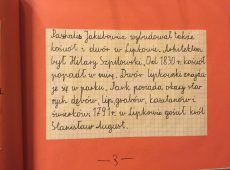 Paschalis Jakubowicz wybudował także
kościół i dwór w Lipkowie. Architektem
był Hilary Szpilowski. Od 1830 r. kościół
popadł w ruinę. Dwór Lipkowski znajdu-
je się w parku. Park posiada okazy sta-
rych dębów, lip, grabów, kasztanów i
świerków. 1791 r. w Lipkowie gościł król
Stanisław August.
3